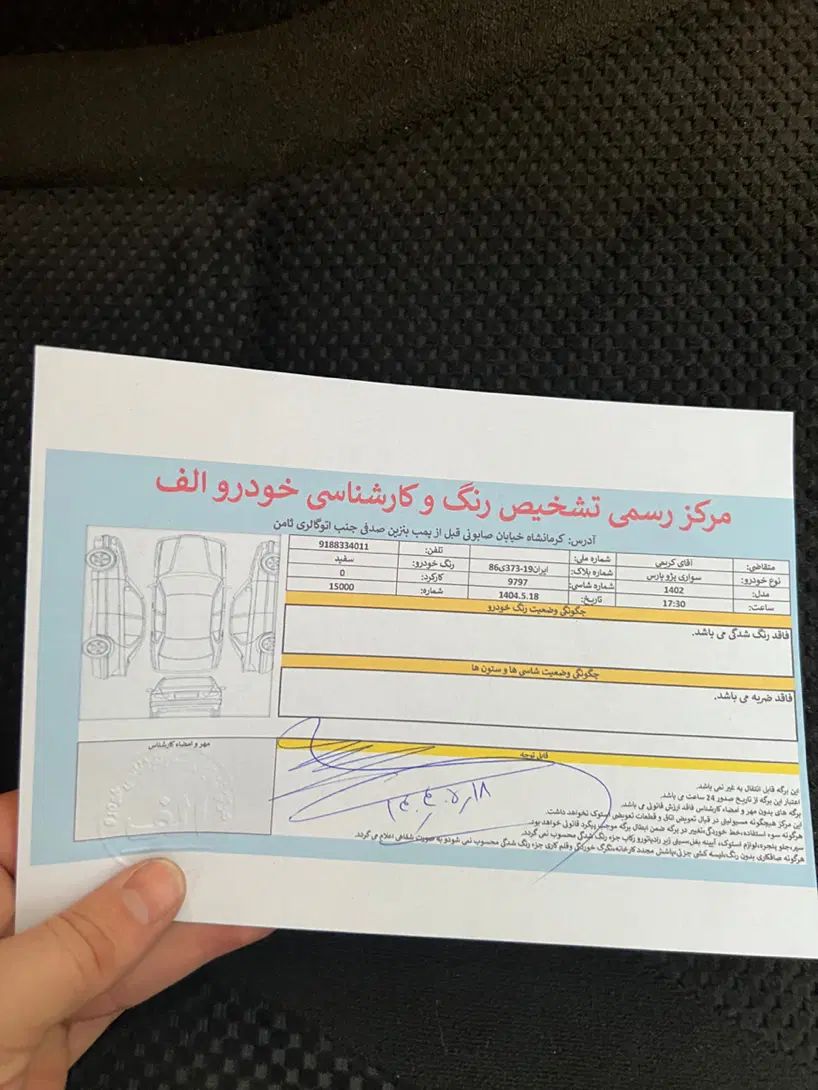 مرکز رسمی تشخیص رنگ و کارشناسی خودرو الف
آدرس: کرمانشاه خیابان صابونی قبل از پمپ بنزین صدفی جنب اتوگالری ثامن
متقاضی: آقای کریمی شماره ملی: تلفن: 9188334011
نوع خودرو: سواری پژو پارس شماره پلاک: ایران19-373ی86 رنگ خودرو: سفید
مدل: 1402 شماره شاسی: 9797 کارکرد: 0
ساعت: 17:30 تاریخ: 1404.5.18 شماره: 15000
چگونگی وضعیت رنگ خودرو
فاقد رنگ شدگی می باشد.
چگونگی وضعیت شاسی ها و ستون ها
فاقد ضربه می باشد.
قابل توجه
این برگه قابل انتقال به غیر نمی باشد.
اعتبار این برگه از تاریخ صدور 24 ساعت می باشد.
برگه های بدون مهر و امضاء کارشناس فاقد ارزش قانونی می باشد.
این مرکز هیچگونه مسیولیتی در قبال تعویض اتاق و قطعات تعویض استوک نخواهد داشت.
هرگونه سوء استفاده،خط خوردگی،تغییر در برگه ضمن ابطال برگه موجب پیگرد قانونی خواهد بود.
سپر،جلو پنجره،لوازم استوک، آیینه بغل،سینی زیر رادیاتورو رکاب جزء رنگ شدگی محسوب نمی گردد.
هرگونه صافکاری بدون رنگ،لیسه کشی جزئی،پاشش مجدد کارخانه،تگرگ خوردگی و قلم کاری جزء رنگ شدگی محسوب نمی شودو به صورت شفاهی اعلام می گردد.
مهر و امضاء کارشناس